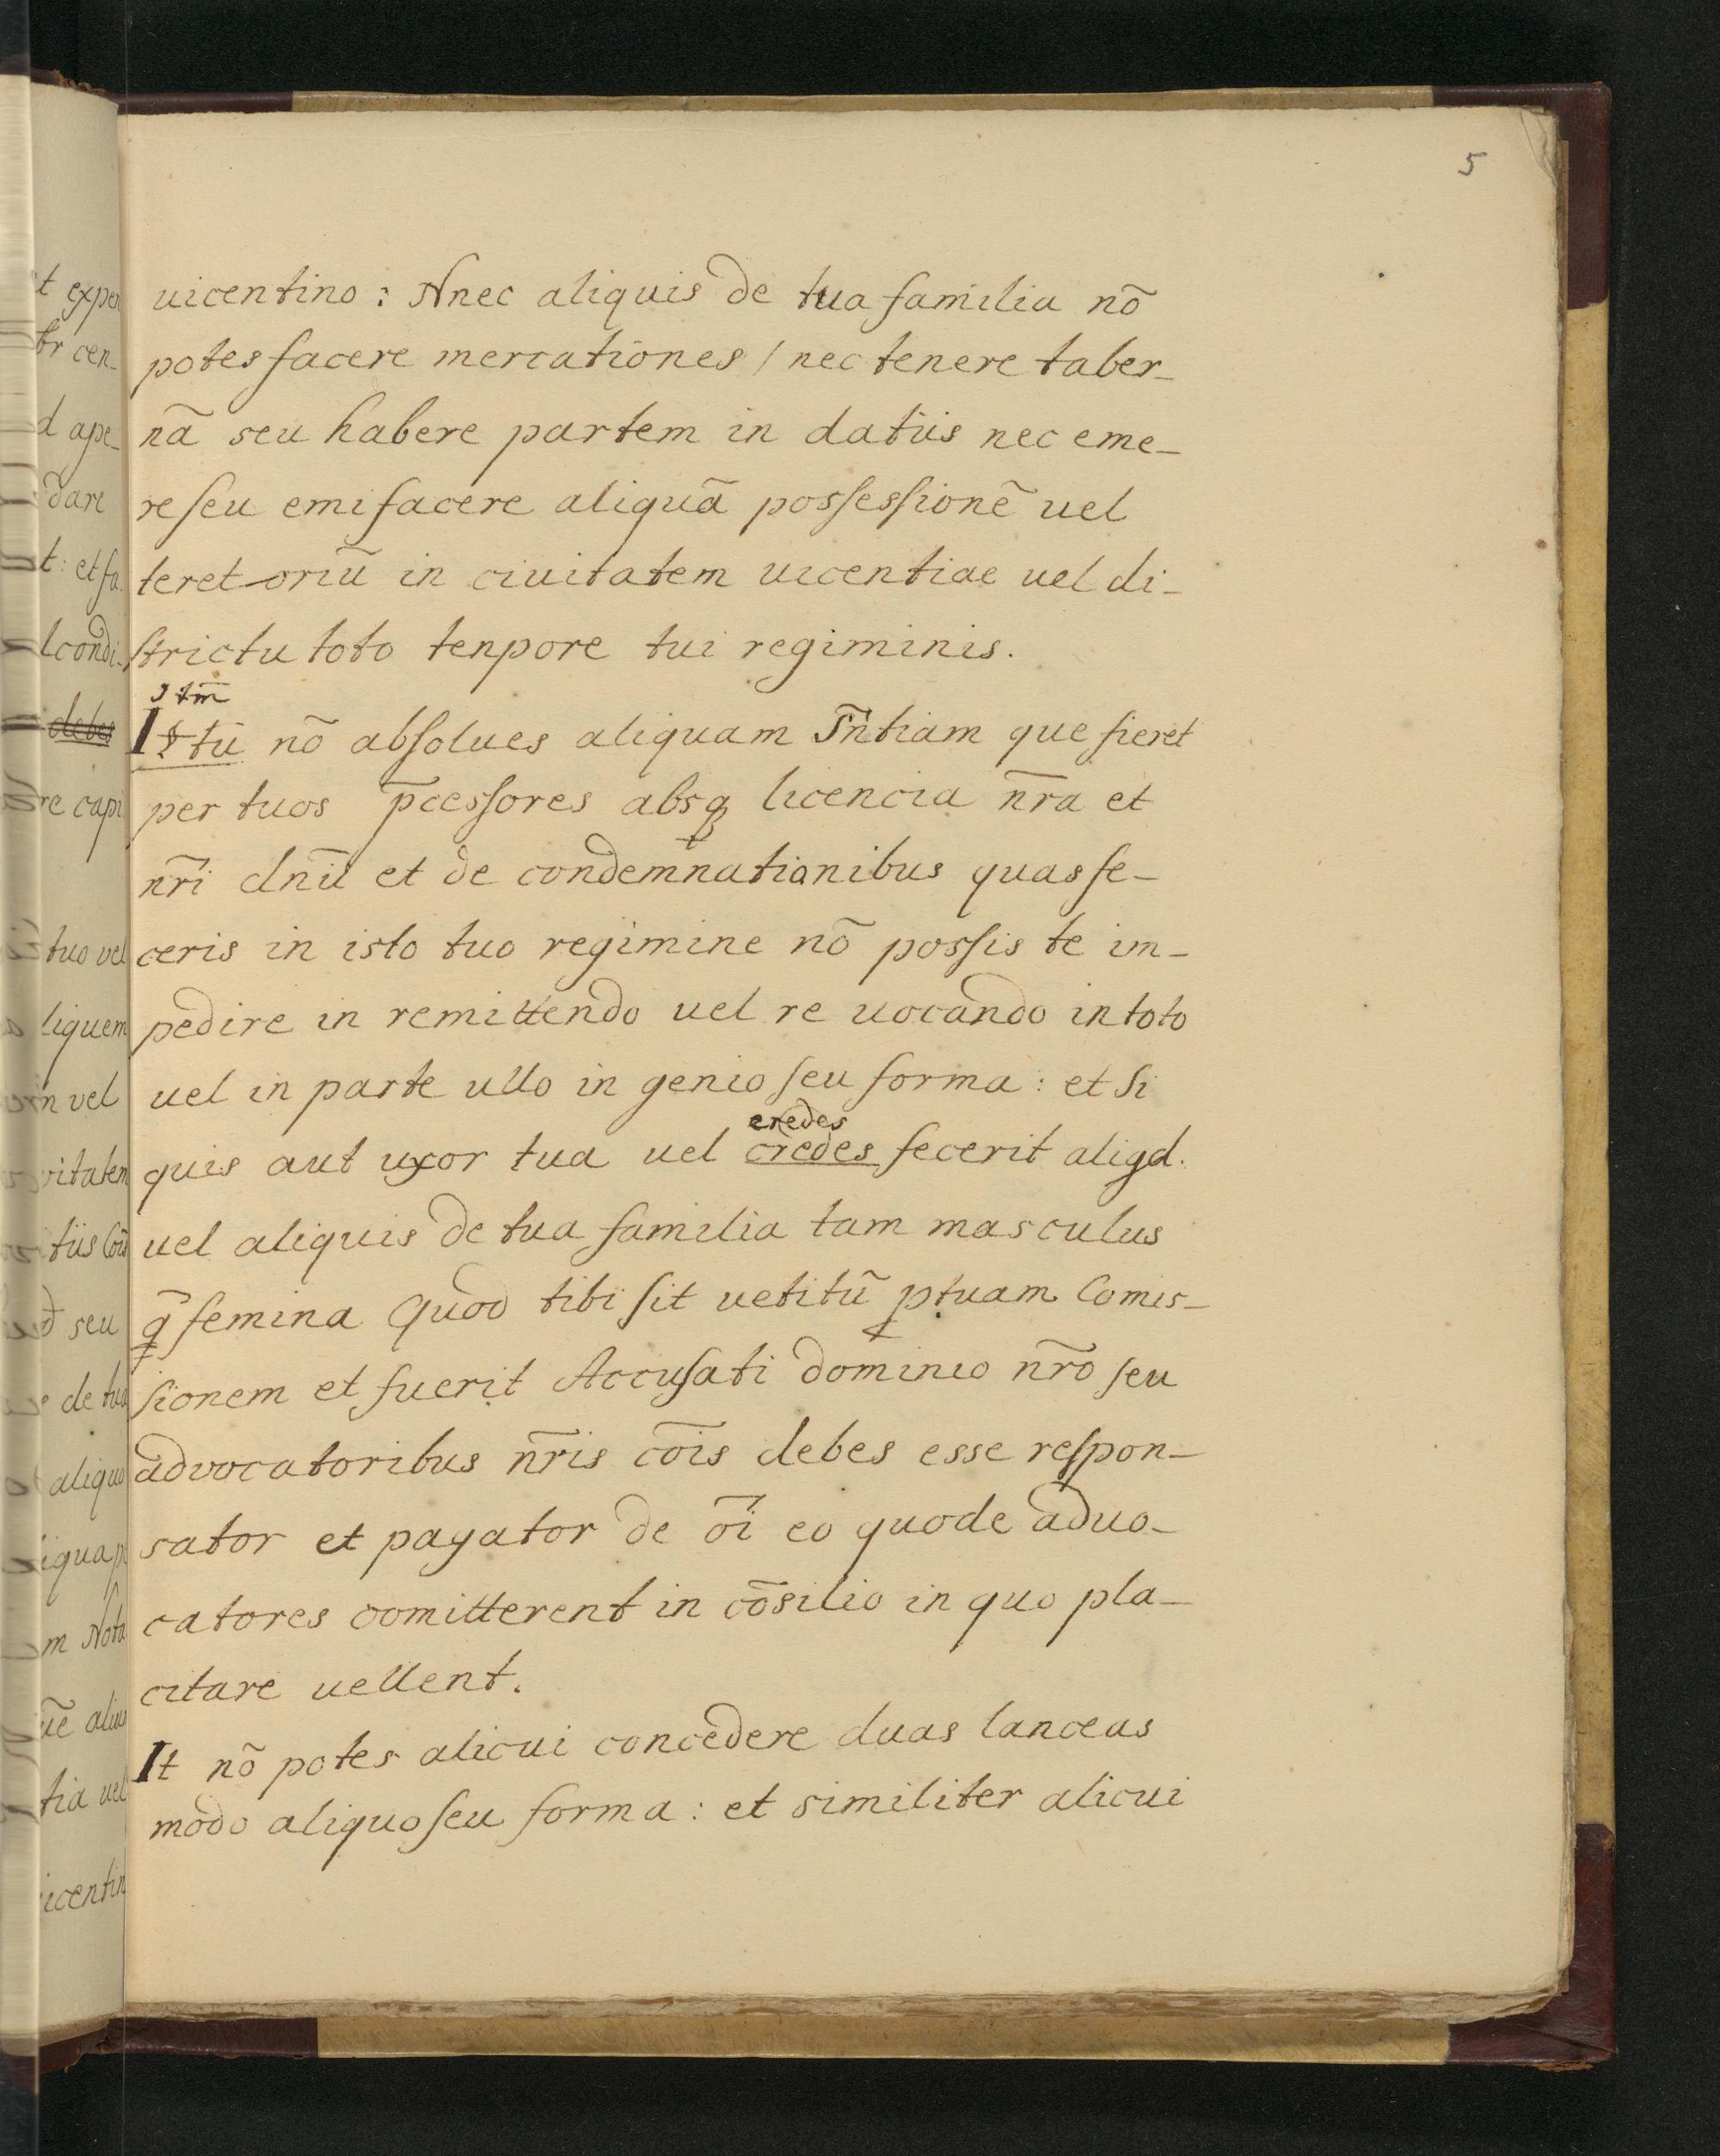 5
uicentino : Nnec aliquis de tua familia nō
potes facere mercationes / nec tenere taber_
nā seu habere partem in datiis nec eme_
re seu emi facere aliquā possessionē uel
teret-oriū in ciuitatem uicentiae uel di_
strictu toto tenpore tui regiminis.
I tm̄
It tū nō absolues aliquam Sn̄tiam que fieret
per tuos p̄cessores absq licencia nr̄a et
nr̄i dn̄ii et de condemnationibus quas fe_
ceris in isto tuo regimine nō possis te im_
pedire in remittendo uel re uocando in toto
uel in parte ullo in genio seu forma : et si
eredes
quis aut uxor tua uel credes fecerit aliqd.
uel aliquis de tua familia tam masculus
q̄ femina Quod tibi sit uetitū ꝑ tuam Comis_
sionem et fuerit Accusati dominio nr̄o seu
advocatoribus nr̄is cōis debes esse respon_
sator et pagator de ōi eo quode aduo_
catores comitterent in cōsilio in quo pla_
citare uellent.
It nō potes alicui concedere duas lanceas
modo aliquo seu forma : et similiter alicui